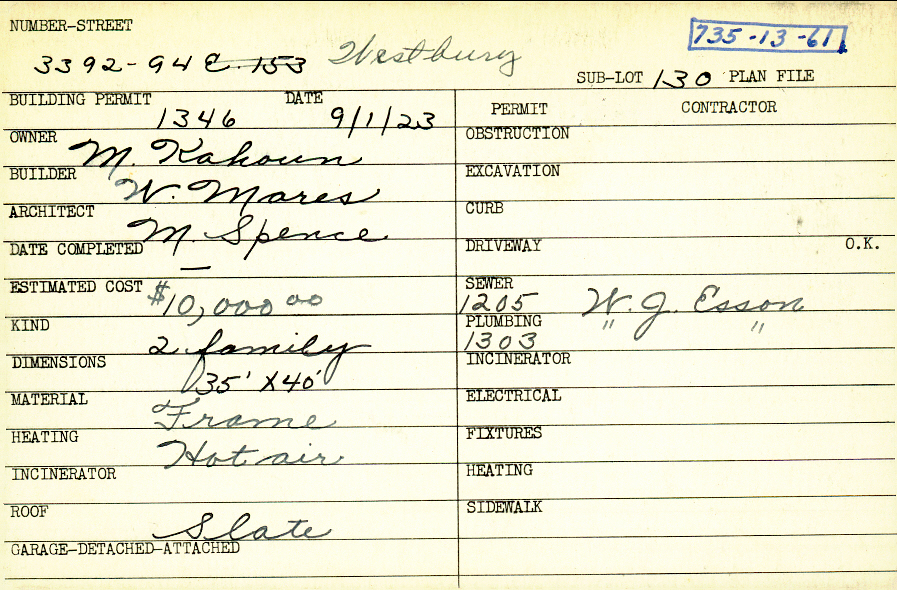 NUMBER-STREET
735-13-61
3392-94 E. 153 Westbury
SUB-LOT 130 PLAN FILE
BUILDING PERMIT DATE
1346 9/1/23
PERMIT CONTRACTOR
OWNER M. Kahoun
BUILDER W. Mares
ARCHITECT M. Spence
DATE COMPLETED —
ESTIMATED COST $10,000 00
KIND 2 family
DIMENSIONS 35' X 40'
MATERIAL Frame
HEATING Hot air
INCINERATOR
ROOF Slate
GARAGE-DETACHED-ATTACHED
OBSTRUCTION
EXCAVATION
CURB
DRIVEWAY O.K.
SEWER
1205 W. J. Esson
PLUMBING " "
1303
INCINERATOR
ELECTRICAL
FIXTURES
HEATING
SIDEWALK